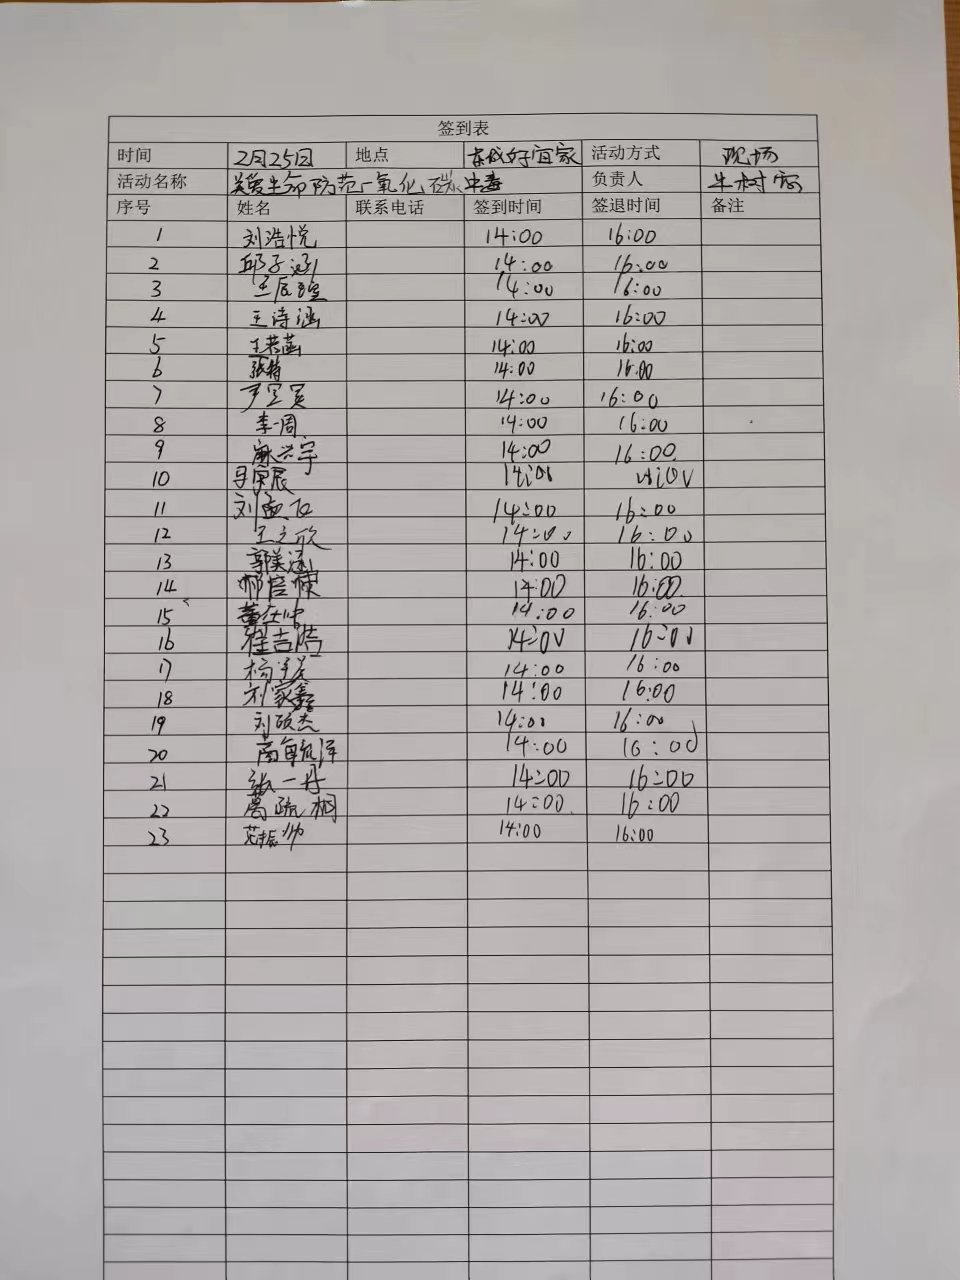 签到表
时间 2月25日 地点 东城好宜家 活动方式 现场
活动名称 关爱生命防范一氧化碳中毒 负责人 牛树
序号 姓名 联系电话 签到时间 签退时间 备注
1 刘浩悦 14:00 16:00
2 邱子涵 14:00 16:00
3 王辰 14:00 16:00
4 王诗涵 14:00 16:00
5 王若菡 14:00 16:00
6 张特 14:00 16:00
7 14:00 16:00
8 李一周 14:00 16:00
9 麻兴宇 14:00 16:00
10 14:00 16:00
11 刘 14:00 16:00
12 王之欣 14:00 16:00
13 郭美涵 14:00 16:00
14 14:00 16:00
15 董在 14:00 16:00
16 程吉皓 14:00 16:00
17 杨 14:00 16:00
18 刘家鑫 14:00 16:00
19 刘硕杰 14:00 16:00
20 14:00 16:00
21 张一丹 14:00 16:00
22 葛疏桐 14:00 16:00
23 范振帅 14:00 16:00